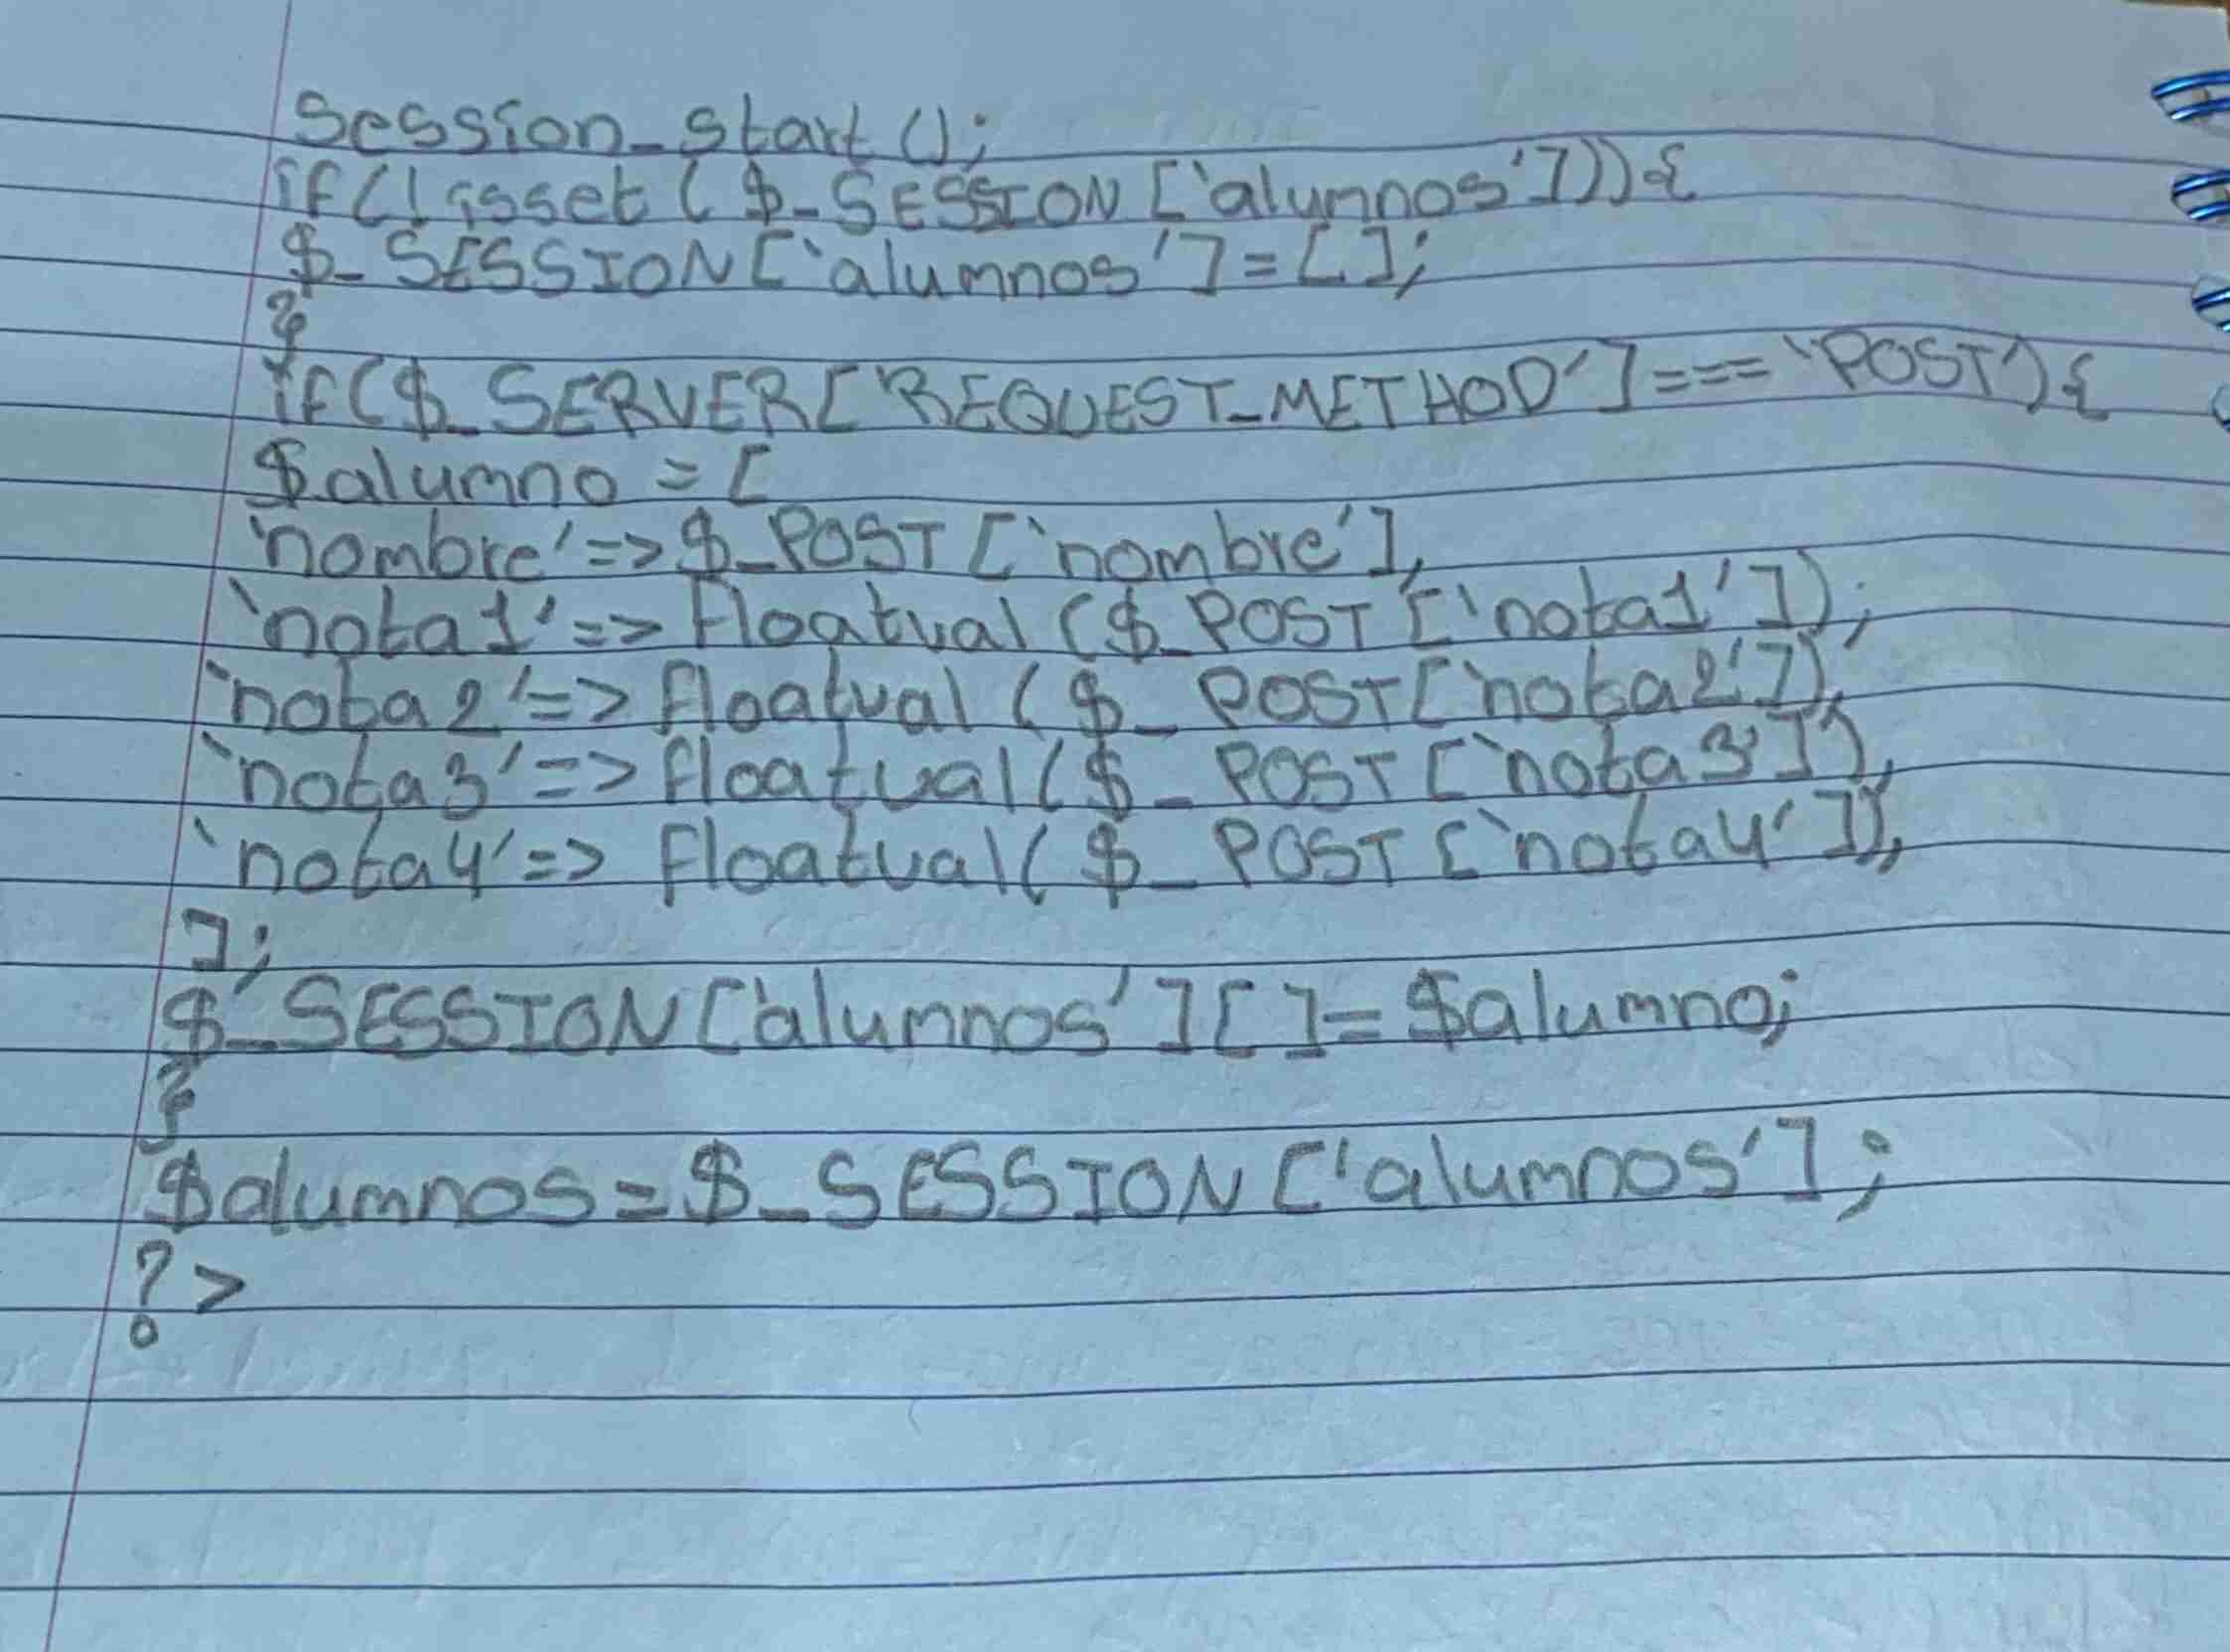 Session_start();
if(!isset($_SESSION['alumnos'])){
$_SESSION['alumnos']=[];
}
if($_SERVER['REQUEST_METHOD']==='POST'){
$alumno=[
'nombre'=>$_POST['nombre'],
'nota1'=>floatval($_POST['nota1']);
'nota2'=>floatval($_POST['nota2']),
'nota3'=>floatval($_POST['nota3']),
'nota4'=>floatval($_POST['nota4']),
];
$_SESSION['alumnos'][]=$alumno;
}
$alumnos=$_SESSION['alumnos'];
?>